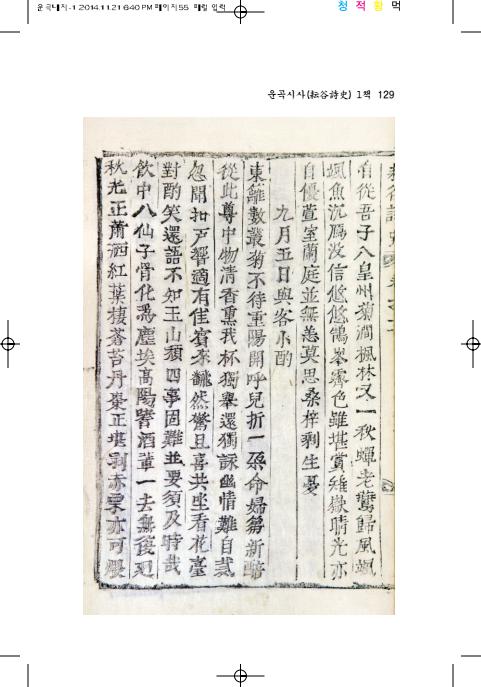 운곡대지-1 2014.11.21 6:40 PM 페이지55 매킬 입력
청 적 황 먹
운곡시사(耘谷詩史) 1책 129
自從吾子入皇州菊澗楓林又一秋蟬老鸎歸風颯
颯魚沉鴈没信悠悠鵠峯霽色雖堪賞雉嶽晴光亦
自優萱室蘭庭並無恙莫思桑梓剩生憂
九月五日與客小酌
東籬數叢菊不待重陽開呼兒折一朶命婦芻新醅
從此尊中物清香熏我杯獨擧還獨詠幽情難自裁
忽聞扣戸聲適有佳賓來翻然驚且喜共坐看花臺
對酌笑還語不知玉山頹四事固難並要須及時哉
飮中八仙子骨化悉塵埃高陽嗜酒輩一去無後廻
秋光正蕭洒紅葉棲蒼苔丹棗正堪剝赤栗亦可煨